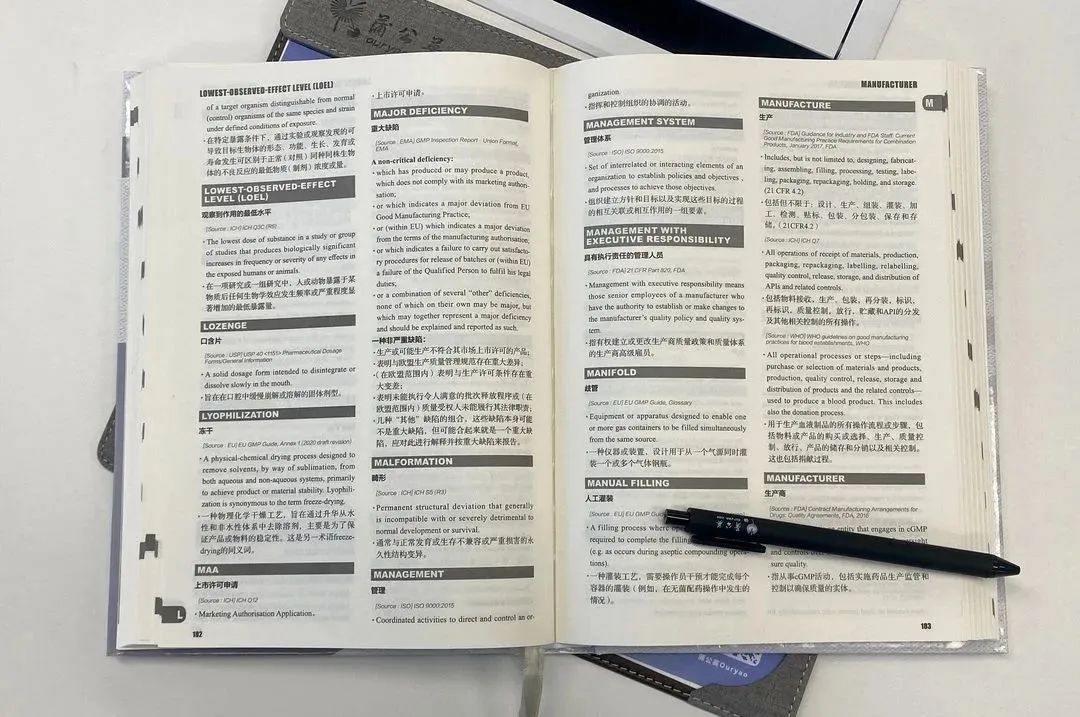 蒲公英
Ouryao
LOWEST-OBSERVED-EFFECT LEVEL (LOEL)
of a target organism distinguishable from normal
(control) organisms of the same species and strain
under defined conditions of exposure.
· 在特定暴露条件下，通过实验或观察发现的可
导致目标生物体的形态、功能、生长、发育或
寿命发生可区别于正常（对照）同种同株生物
体的不良反应的最低物质（制剂）浓度或量。
LOWEST-OBSERVED-EFFECT
LEVEL (LOEL)
观察到作用的最低水平
[Source : ICH] ICH Q3C (R6)
· The lowest dose of substance in a study or group
of studies that produces biologically significant
increases in frequency or severity of any effects in
the exposed humans or animals.
· 在一项研究或一组研究中，人或动物暴露于某
物质后任何生物学效应发生频率或严重程度显
著增加的最低暴露量。
LOZENGE
口含片
[Source : USP] USP 40 <1151> Pharmaceutical Dosage
Forms/General Information
· A solid dosage form intended to disintegrate or
dissolve slowly in the mouth.
· 旨在在口腔中缓慢崩解或溶解的固体剂型。
LYOPHILIZATION
冻干
[Source : EU] EU GMP Guide, Annex 1 (2020 draft revision)
· A physical-chemical drying process designed to
remove solvents, by way of sublimation, from
both aqueous and non-aqueous systems, primarily
to achieve product or material stability. Lyophili-
zation is synonymous to the term freeze-drying.
· 一种物理化学干燥工艺，旨在通过升华从水
性和非水性体系中去除溶剂，主要是为了保
证产品或物料的稳定性。这是另一术语freeze-
drying的同义词。
MAA
上市许可申请
[Source : ICH] ICH Q12
· Marketing Authorisation Application。
L
182
· 上市许可申请。
MAJOR DEFICIENCY
重大缺陷
[Source : EMA] GMP Inspection Report - Union Format,
EMA
A non-critical deficiency:
· which has produced or may produce a product,
which does not comply with its marketing authori-
sation;
· or which indicates a major deviation from EU
Good Manufacturing Practice;
· or (within EU) which indicates a major deviation
from the terms of the manufacturing authorisation;
· or which indicates a failure to carry out satisfacto-
ry procedures for release of batches or (within EU)
a failure of the Qualified Person to fulfil his legal
duties;
· or a combination of several “other” deficiencies,
none of which on their own may be major, but
which may together represent a major deficiency
and should be explained and reported as such.
一种非严重缺陷：
· 生产或可能生产不符合其市场上许可的产品；
· 表明与欧盟生产质量管理规范存在重大差异；
·（在欧盟范围内）表明与生产许可条件存在重
大变差；
· 表明未能执行令人满意的批次释放程序或（在
欧盟范围内）质量受权人未能履行其法律职责；
· 几种“其他”缺陷的组合，这些缺陷本身可能
不是重大缺陷，但可能合起来就是一个重大缺
陷，应对此进行解释并按重大缺陷来报告。
MALFORMATION
畸形
[Source : ICH] ICH S5 (R3)
· Permanent structural deviation that generally
is incompatible with or severely detrimental to
normal development or survival.
· 通常与正常发育或生存不兼容或严重损害的永
久性结构变异。
MANAGEMENT
管理
[Source : ISO] ISO 9000:2015
· Coordinated activities to direct and control an or-
MANUFACTURER
M
ganization.
· 指挥和控制组织的协调的活动。
MANAGEMENT SYSTEM
管理体系
[Source : ISO] ISO 9000:2015
· Set of interrelated or interacting elements of an
organization to establish policies and objectives ,
and processes to achieve those objectives.
· 组织建立方针和目标以及实现这些目标的过程
的相互关联或相互作用的一组要素。
MANAGEMENT WITH
EXECUTIVE RESPONSIBILITY
具有执行责任的管理人员
[Source : FDA] 21 CFR Part 820, FDA
· Management with executive responsibility means
those senior employees of a manufacturer who
have the authority to establish or make changes to
the manufacturer’s quality policy and quality sys-
tem.
· 指有权建立或更改生产商质量政策和质量体系
的生产商高级雇员。
MANIFOLD
歧管
[Source : EU] EU GMP Guide, Glossary
· Equipment or apparatus designed to enable one
or more gas containers to be filled simultaneously
from the same source.
· 一种仪器或装置，设计用于从一个气源同时灌
装一个或多个气体钢瓶。
MANUAL FILLING
人工灌装
[Source : EU] EU GMP Gui
· A filling process where
required to complete the filling
(e.g. as occurs during aseptic compounding opera-
tions).
· 一种灌装工艺，需要操作员干预才能完成每个
容器的灌装（例如，在无菌配药操作中发生的
情况）。
MANUFACTURE
生产
[Source : FDA] Guidance for Industry and FDA Staff: Current
Good Manufacturing Practice Requirements for Combination
Products, January 2017, FDA
· Includes, but is not limited to, designing, fabricat-
ing, assembling, filling, processing, testing, labe-
ling, packaging, repackaging, holding, and storage.
(21 CFR 4.2)
· 包括但不限于：设计、生产、组装、灌装、加
工、检测、贴标、包装、分包装、保存和存
储。（21CFR4.2 ）
[Source : ICH] ICH Q7
· All operations of receipt of materials, production,
packaging, repackaging, labelling, relabelling,
quality control, release, storage, and distribution of
APIs and related controls.
· 包括物料接收，生产，包装，再分装，标识，
再标识，质量控制，放行，贮藏和API的分发
及其他相关控制的所有操作。
[Source : WHO] WHO guidelines on good manufacturing
practices for blood establishments, WHO
· All operational processes or steps—including
purchase or selection of materials and products,
production, quality control, release, storage and
distribution of products and the related controls—
used to produce a blood product. This includes
also the donation process.
· 用于生产血液制品的所有操作流程或步骤，包
括物料或产品的购买或选择、生产、质量控
制、放行、产品的储存和分销以及相关控制。
这也包括捐献过程。
MANUFACTURER
生产商
[Source : FDA] Contract Manufacturing Arrangements for
Drugs: Quality Agreements, FDA, 2016
entity that engages in cGMP
and control
sure quality.
· 指从事cGMP活动，包括实施药品生产监管和
控制以确保质量的实体。
183
蒲公英
蒲公英Ouryao